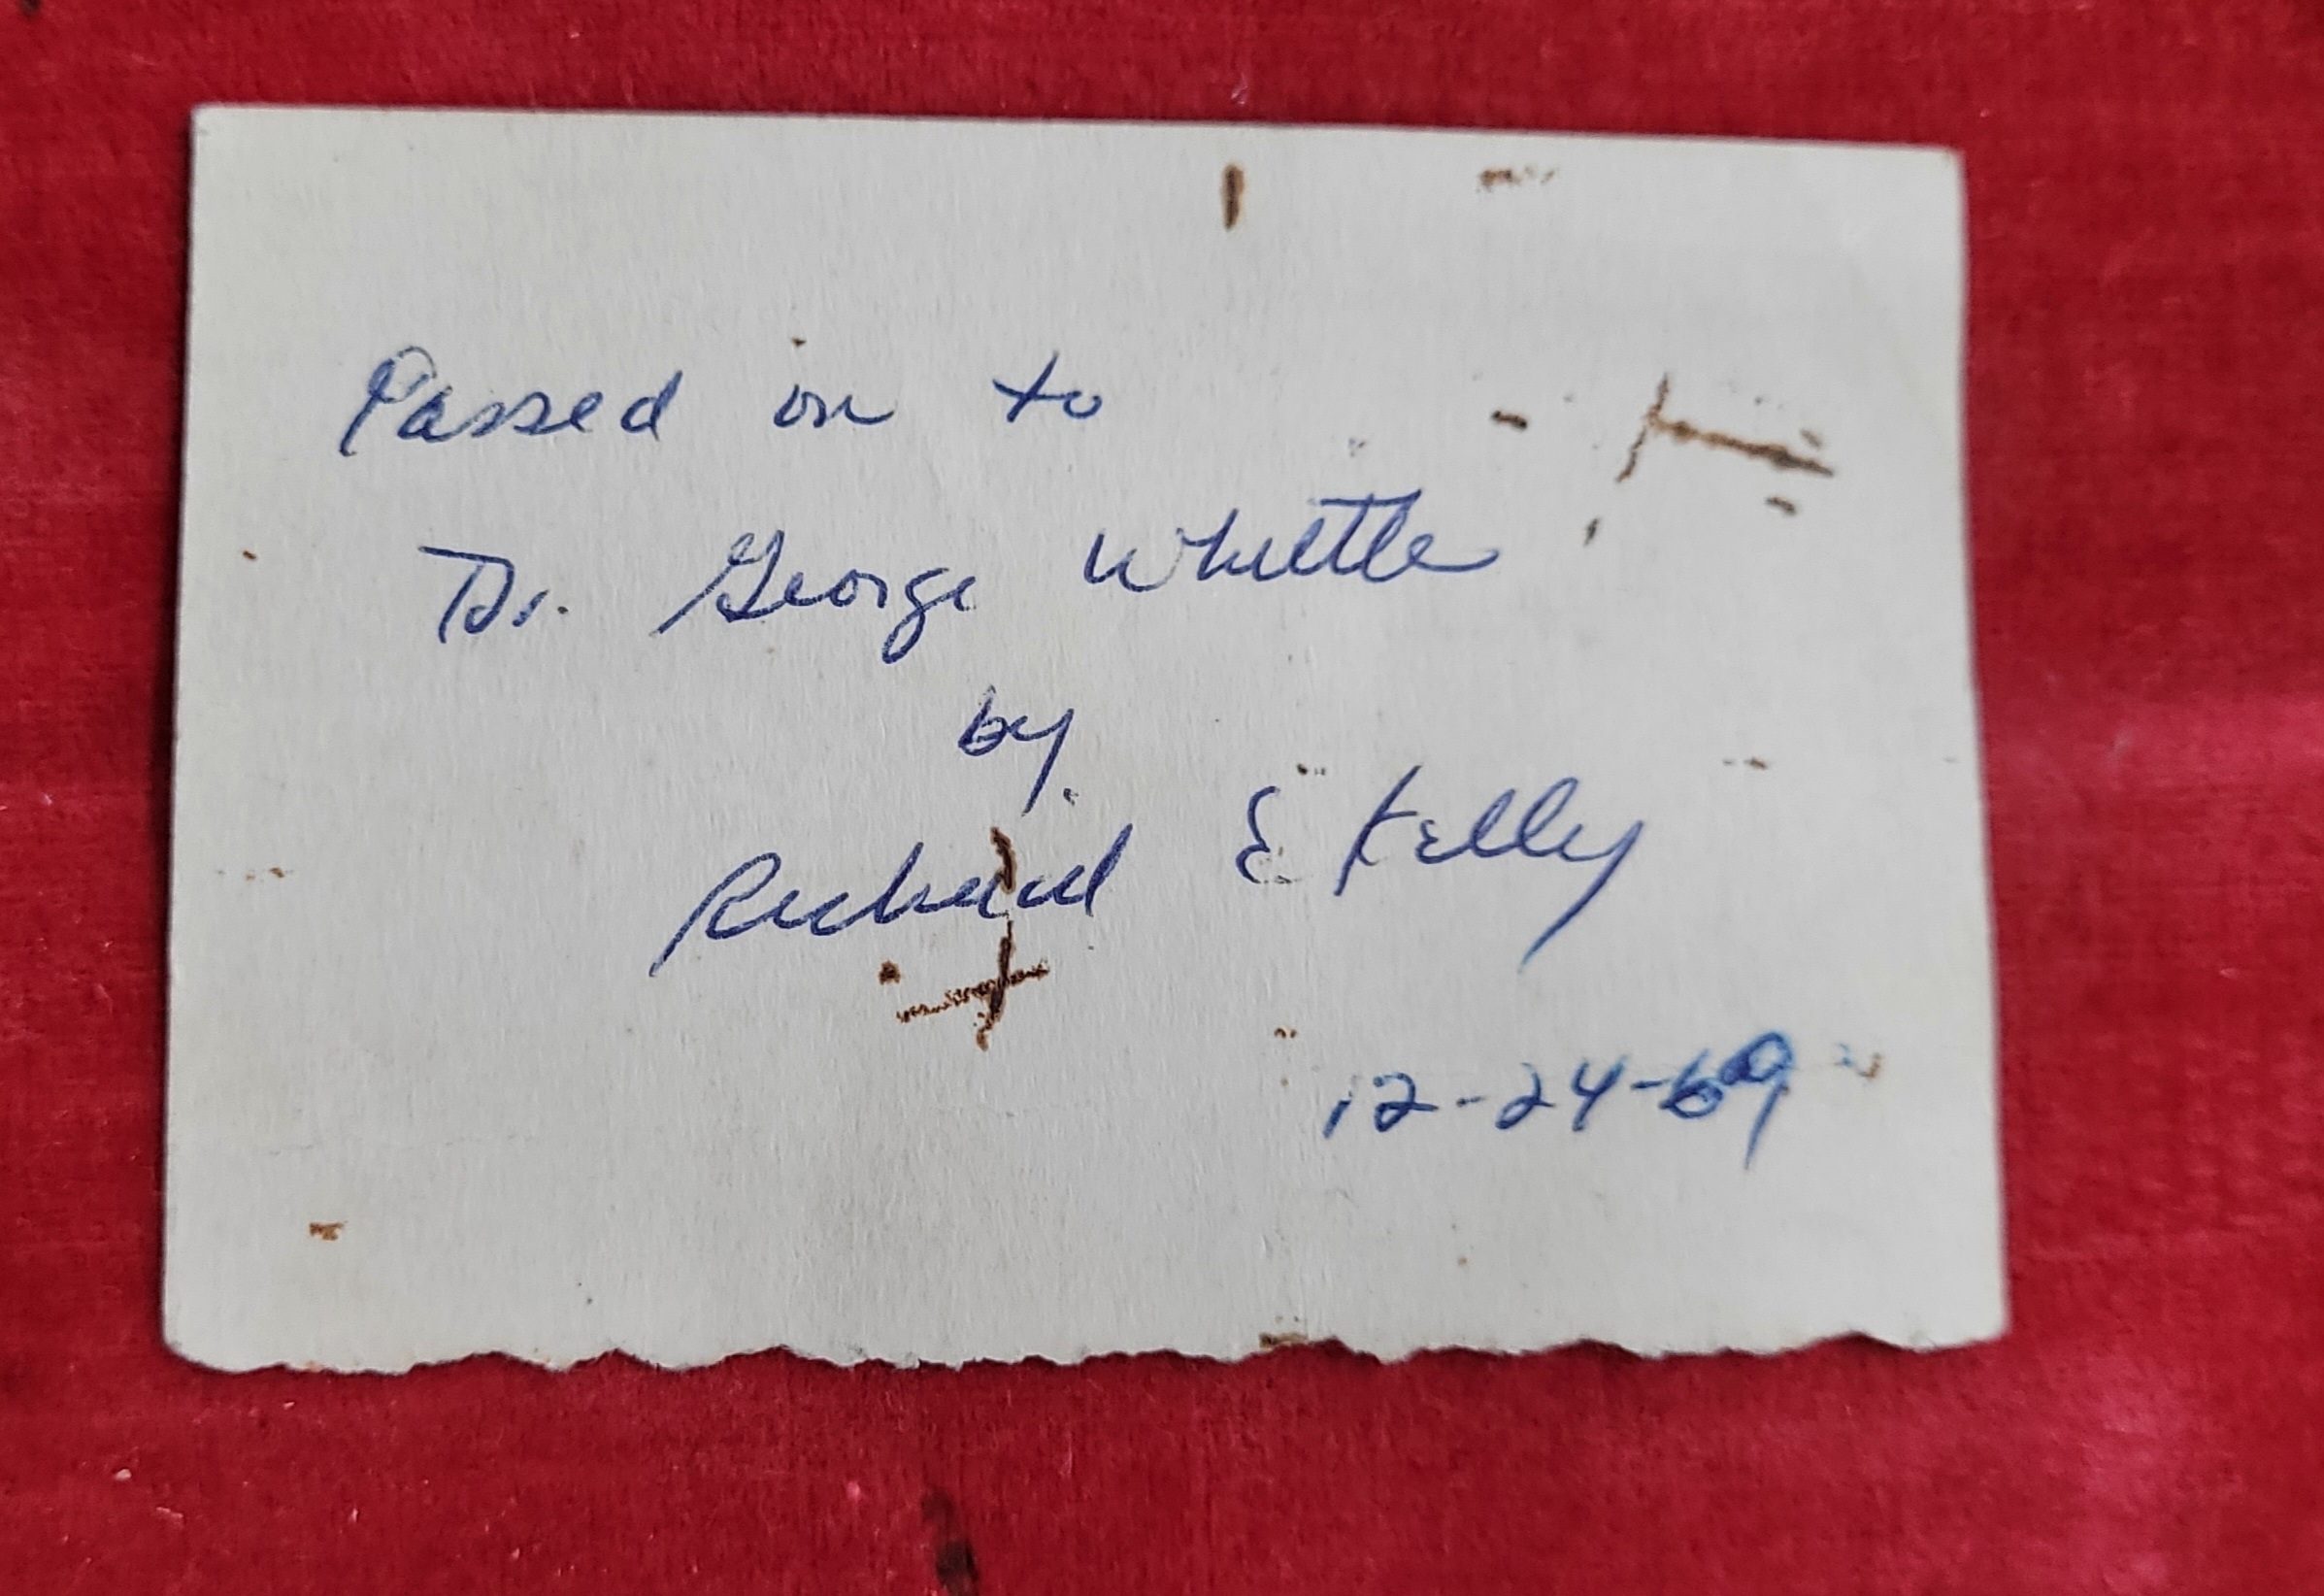 Passed on to
Dr. George Whittle
by
Richard E Kelly
12-24-69